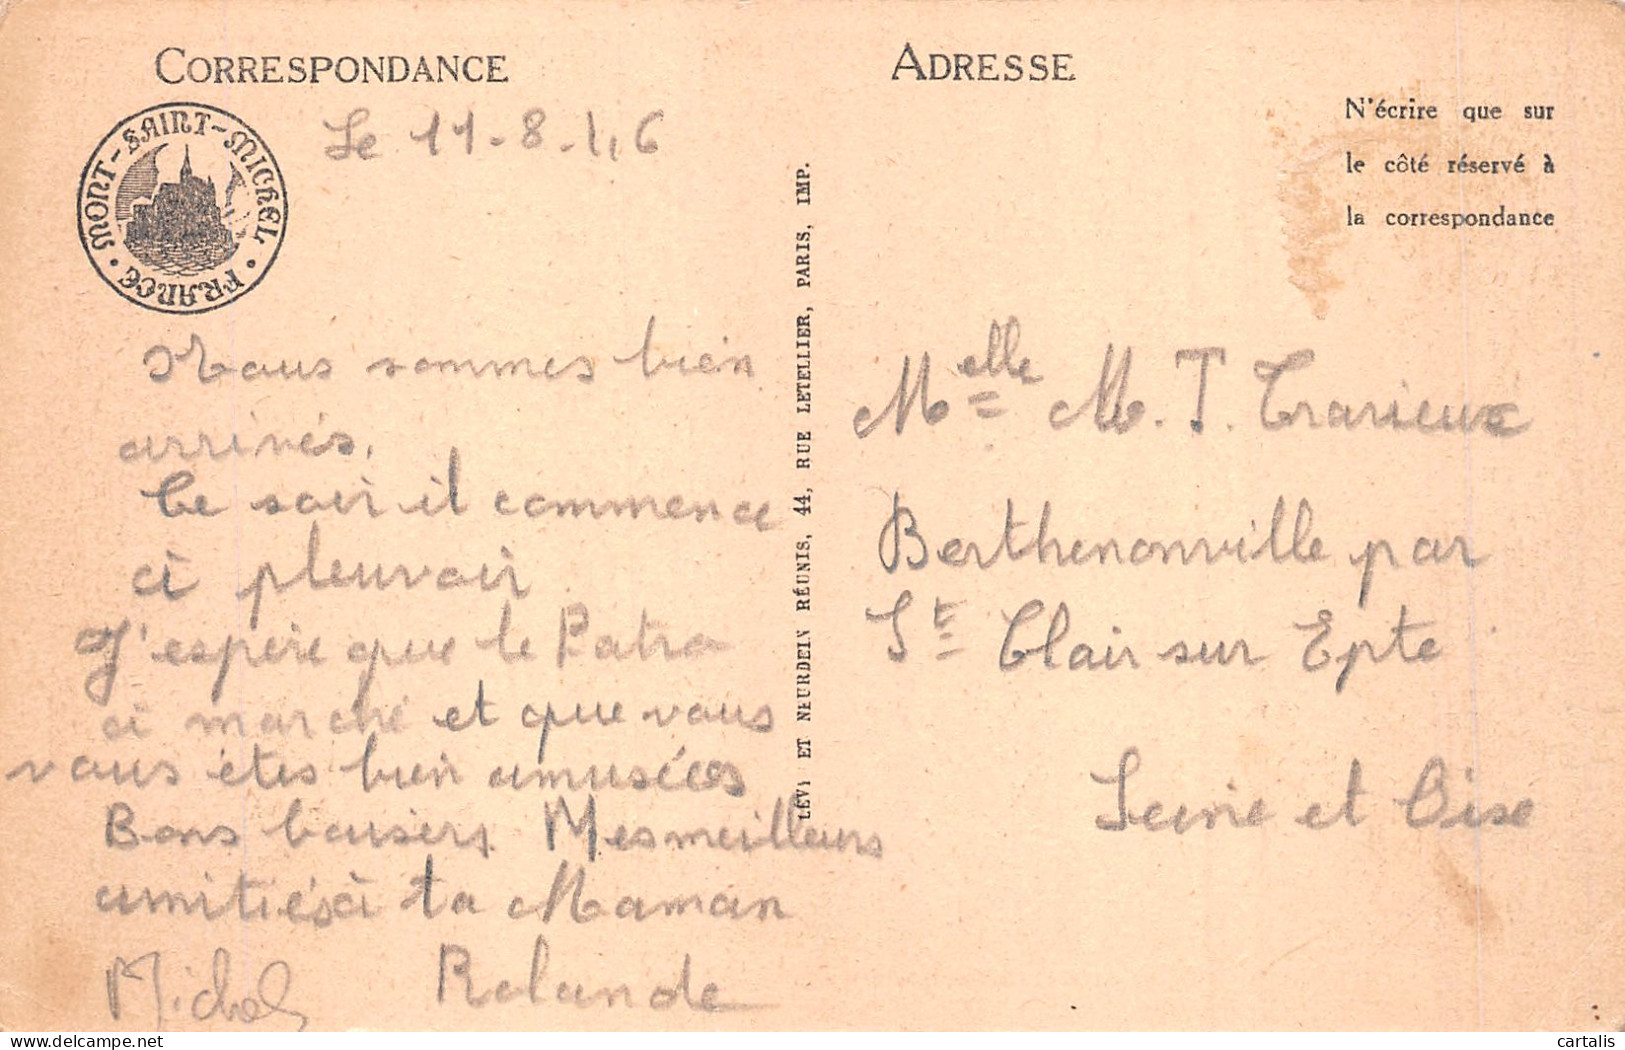 CORRESPONDANCE
MONT-SAINT-MICHEL • FRANCE •
Le 11-8-46
Nous sommes bien
arrivés.
Ce soir il commence
à pleuvoir
J'espère que le Patro
a marché et que vous
vous êtes bien amusées
Bons baisers. Mes meilleurs
amitiés à ta Maman
Michel Rolande
LÉVY ET NEURDEIN RÉUNIS, 44, RUE LETELLIER, PARIS, IMP.
ADRESSE
N'écrire que sur
le côté réservé à
la correspondance
Melle M. T. Trarieux
Berthenonville par
St Clair sur Epte
Seine et Oise
cartalis